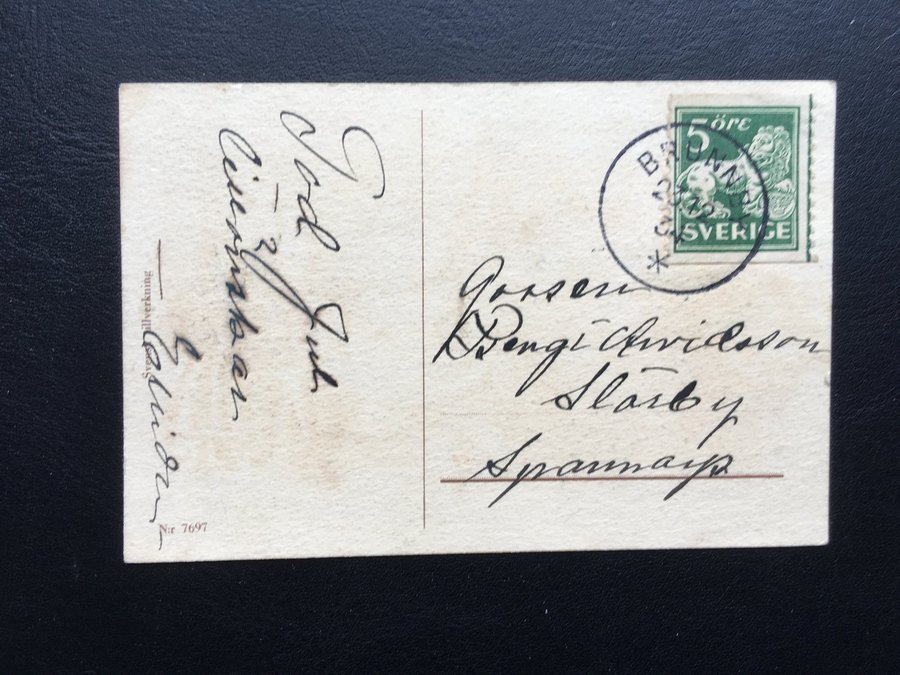 God Jul
tillverkning
N:r 7697
5 ÖRE
SVERIGE
BRUNN
Gossen
Bengt Arvidsson
Slörby
Spannarp